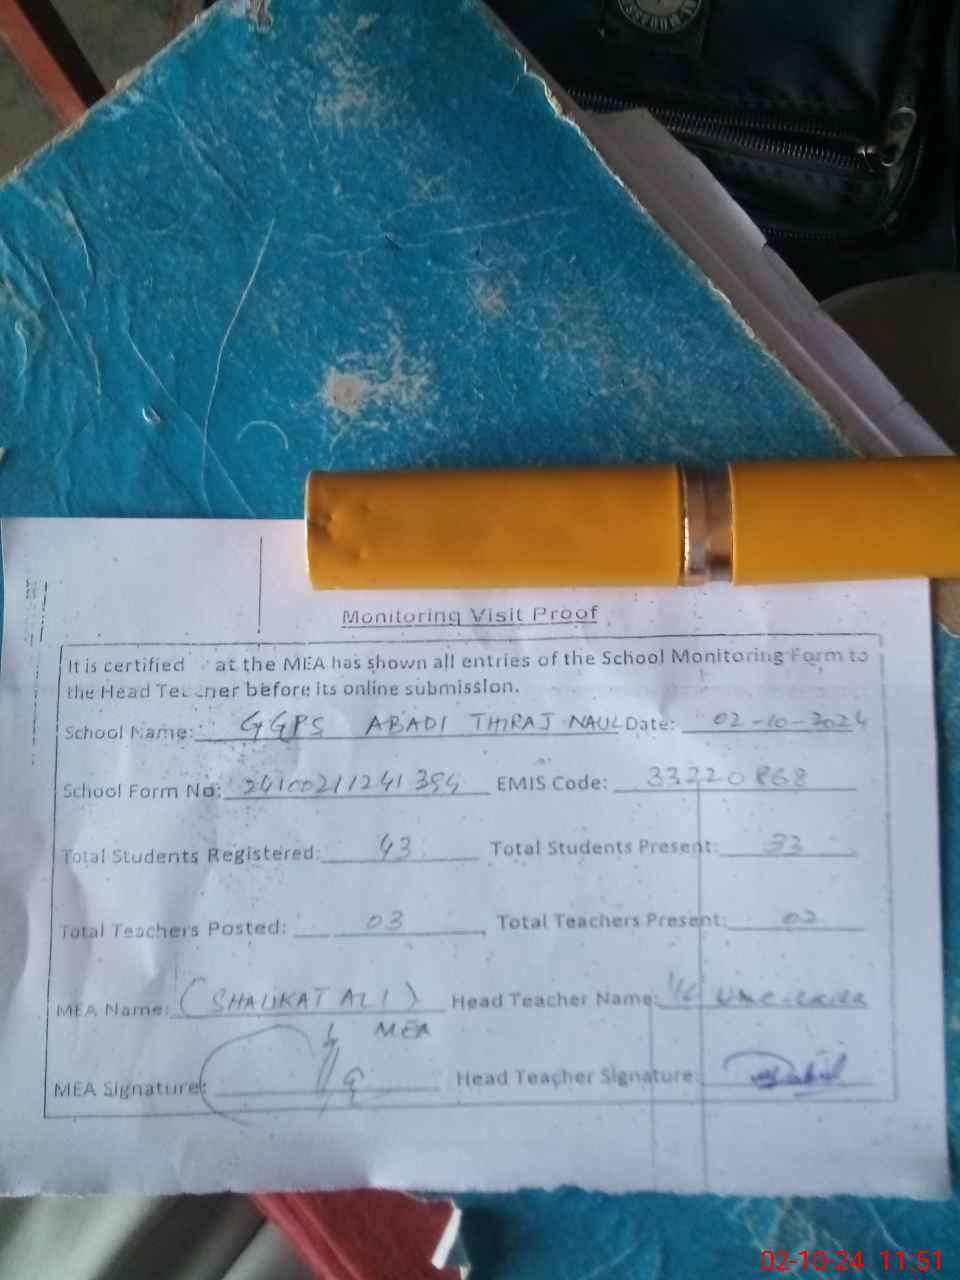 Monitoring Visit Proof
It is certified at the MEA has shown all entries of the School Monitoring Form to
the Head Teacher before its online submission.
School Name: GGPS ABADI THIRAJ NAUL Date: 02-10-2024
School Form No: 24100211241394 EMIS Code: 33220868
Total Students Registered: 43 Total Students Present: 33
Total Teachers Posted: 03 Total Teachers Present: 02
MEA Name: (SHAUKAT ALI) Head Teacher Name:
MEA
MEA Signature: Head Teacher Signature:
02-10-24 11:51